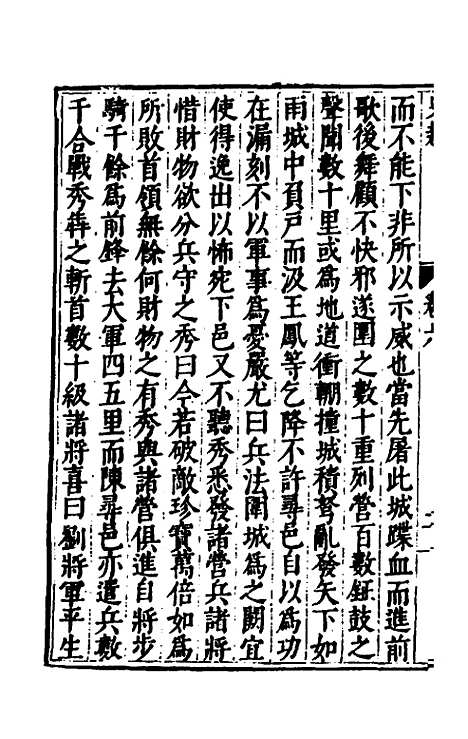 而不能下非所以示威也當先屠此城蹀血而進前
歌後舞顧不快邪遂圍之數十重列營百數鉦鼓之
聲聞數十里或爲地道衝輣撞城積弩亂發矢下如
雨城中負戸而汲王鳳等乞降不許尋邑自以爲功
在漏刻不以軍事爲憂嚴尤曰兵法圍城爲之闕宜
使得逸出以怖宛下邑又不聽秀悉發諸營兵諸將
惜財物欲分兵守之秀曰今若破敵珍寶萬倍如爲
所敗首領無餘何財物之有秀與諸營俱進自將步
騎千餘爲前鋒去大軍四五里而陳尋邑亦遣兵數
千合戰秀犇之斬首數十級諸將喜曰劉將軍平生